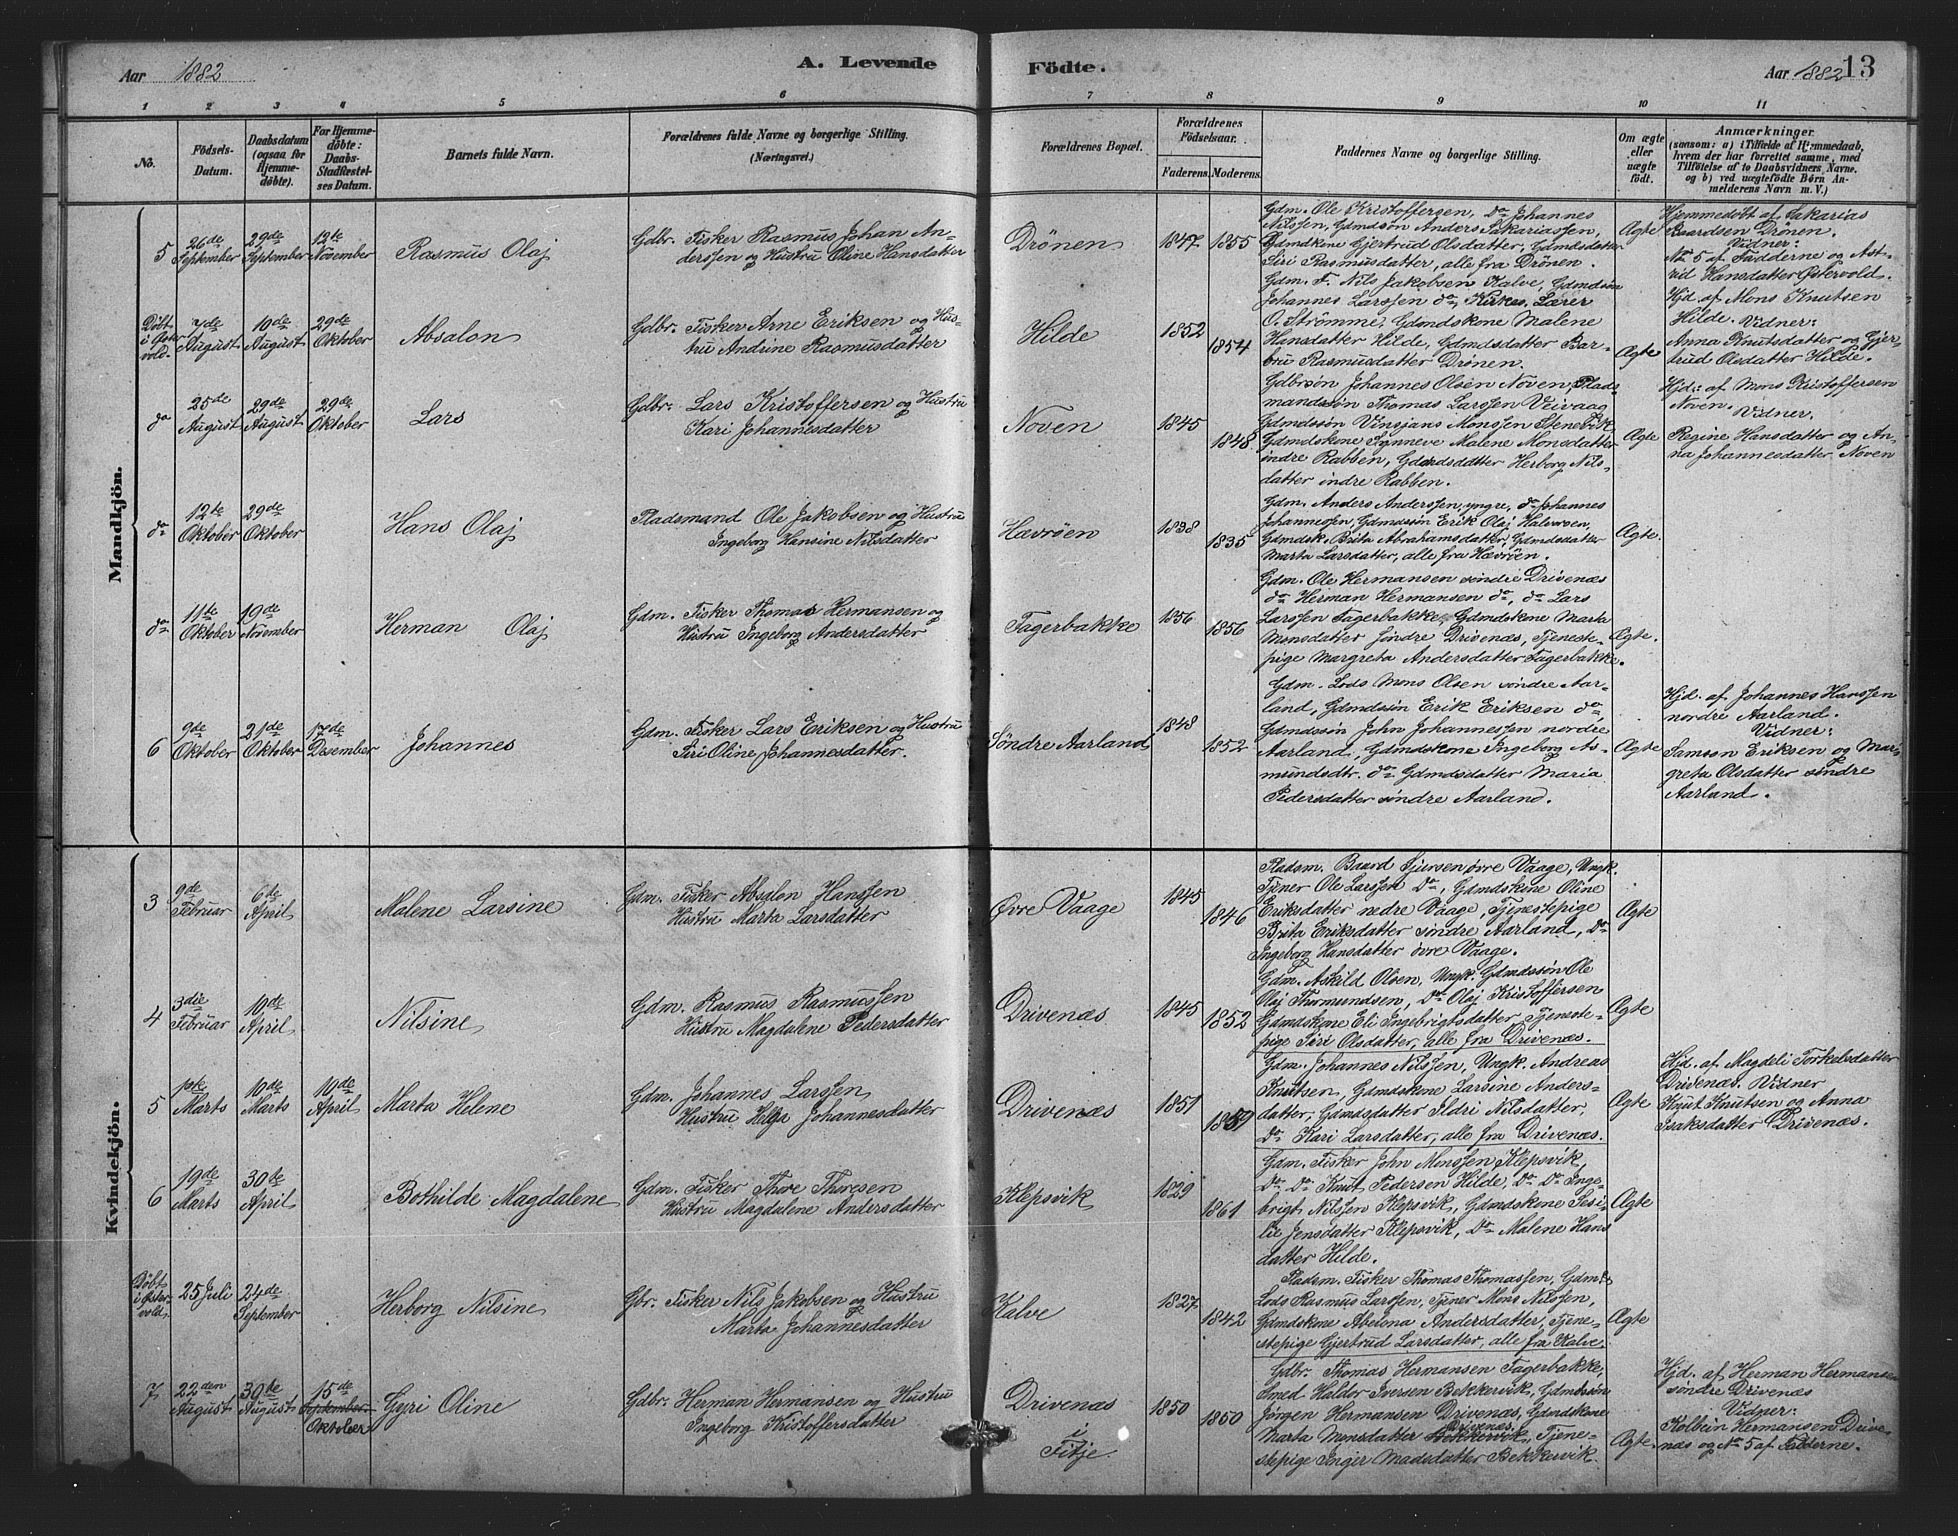 Aar 1882
A. Levende Födte.
Aar 1882 13
1 2 3 4 5 6 7 8 9 10 11
No.
Födsels-
Datum.
Daabsdatum
(ogsaa for
Hjemme-
døbte).
For Hjemme-
döbte:
Daabs-
Stadfæstel-
ses Datum.
Barnets fulde Navn.
Forældrenes fulde Navne og borgerlige Stilling.
(Næringsvei.)
Forældrenes Bopæl.
Forældrenes
Födselsaar.
Faderens. Moderens.
Faddernes Navne og borgerlige Stilling.
Om ægte
eller
uægte
födt.
Anmærkninger
(saasom: a) i Tilfælde af Hjemmedaab,
hvem der har forrettet samme, med
Tilföielse af to Daabsvidners Navne.
og b) ved uægtefödte Børn An-
melderens Navn m. V.)
Mandkjön.
5
26de
September
29de
September
12te
November
Rasmus Olaj
Gdbr. Fisker Rasmus Johan An-
derssen og Hustru Oline Hansdatter
Drönen
1847
1855
Gdm. Ole Kristoffersen, Do Johannes
Nilssen, Gdmdsön Anders Sakariassen,
Gdmdskone Gjertrud Olsdatter, Gdmdsdatter
Siri Rasmusdatter, alle fra Drönen.
Ægte
Hjemmedöbt af Sakarias
Baardsen Drönen.
Vidner:
No 5 af Fadderne og Ast-
rid Hansdatter Østervold.
Döbt
i Øster
vold.
7de
August
10de
August
29de
Oktober
Absalon
Gdbr. Fisker Arne Eriksen og Hus-
tru Andrine Rasmusdatter
Hilde
1852
1854
Gdm. F. Nils Jakobsen Kalve, Gdmdsön
Johannes Larssen do, Kirkes. Lærer
O. Strömme, Gdmdskone Malene
Hansdatter Hilde, Gdmdsdatter Bar-
bru Rasmusdatter Drönen.
Ægte
Hjd. af Mons Knutsen
Hilde. Vidner:
Anna Knutsdatter og Gjer-
trud Olsdatter Hilde.
do
25de
August
29de
August
29de
Oktober
Lars
Gdbr. Lars Kristoffersen og Hustru
Kari Johannesdatter
Noven
1845
1848
Gdbrsön Johannes Olsen Noven, Plads
mandssön Thomas Larssen Veivaag
Gdmdssön Vinsjans Monssen Stenevik,
Gdmdskone Synneve Malene Monsdatter
indre Rabben, Gdmdsdatter Herborg Nils-
datter indre Rabben.
Ægte
Hjd. af Mons Kristoffersen
Noven. Vidner.
Regine Hansdatter og An-
na Johannesdatter Noven
do
12te
Oktober
29de
Oktober
Hans Olaj
Pladsmand Ole Jakobsen og Hustru
Ingeborg Hansine Nilsdatter
Hævröen
1838
1835
Gdm. Anders Anderssen, yngre, do Johannes
Johannessen, Gdmdssön Erik Olaj Halvorsen,
Gdmdsk. Brita Abrahamsdatter, Gdmdsdatter
Marta Larsdatter, alle fra Hævröen.
Ægte.
do
11te
Oktober
19de
November
Herman Olaj
Gdm. Fisker Thomas Hermansen og
Hustru Ingeborg Andersdatter
Fagerbakke
1856
1856
Gdm. Ole Hermansen söndre Drivenæs
do Herman Hermansen do, do Lars
Larssen Fagerbakke, Gdmdskone Marta
Monsdatter söndre Drivenæs, Tjeneste-
pige Margreta Andersdatter Fagerbakke.
Ægte.
6
9de
Oktober
21de
Oktober
17de
Desember
Johannes
Gdm. Fisker Lars Eriksen og Hustru
Siri Oline Johannesdatter.
Söndre Aarland
1848
1852
Gdm. Lods Mons Olsen söndre Aar-
land, Gdmdssön Erik Eriksen do,
Gdmdssön John Johannessen nordre
Aarland, Gdmdskone Ingeborg As-
mundsdtr. do Gdmdsdatter Maria
Pedersdatter söndre Aarland.
Ægte
Hjd. af Johannes Hanssen
nordre Aarland.
Vidner:
Samson Eriksen og Mar-
greta Olsdatter söndre
Aarland.
Kvindekjön.
3
9de
Februar
6te
April
Malene Larsine
Gdm. Fisker Absalon Hanssen
Hustru Marta Larsdatter
Øvre Vaage
1845
1846
Pladsm. Baard Sjursen övre Vaage, Ungk.
Tjener Ole Larssen Do, Gdmdskone Oline
Eriksdatter nedre Vaage, Tjenestepige
Brita Eriksdatter söndre Aarland, Do
Ingeborg Hansdatter övre Vaage.
Ægte
4
3die
Februar
10de
April
Nilsine
Gdm. Rasmus Rasmussen
Hustru Magdalene Pedersdatter
Drivenæs
1845
1852
Gdm. Askild Olsen, Ungk. Gdmdssön Ole
Olaj Thormundsen, Do Olaj Kristoffersen
Gdmdskone Eli Ingebrigtsdatter, Tjeneste-
pige Siri Olsdatter, alle fra Drivenæs.
Ægte
5
1ste
Marts
10de
Marts
10de
April
Marta Helene
Gdm. Johannes Larssen
Hustru Helga Johannesdatter
Drivenæs
1851
Gdm. Johannes Nilssen, Ungk. Andreas
Knutsen, Gdmdskone Larsine Anders-
datter, Gdmdsdatter Ildri Nilsdatter,
Do Kari Larsdatter, alle fra Drivenæs.
Ægte
Hjd. af Magdeli Torkelsdatter
Drivenæs. Vidner
Knut Knutsen og Anna
Isaksdatter Drivenæs.
6
19de
Marts
30te
April
Bothilde Magdalene
Gdm. Fisker Thore Thoresen
Hustru Magdalene Andersdatter
Klepsvik
1829
1861
Gdm. Fisker John Monssen Klepsvik,
Do Do Knut Pedersen Hilde, Do Do Inge-
brigt Nilssen Klepsvik, Gdmdskone Sesi-
lie Jensdatter Klepsvik, Do Malene Hans
datter Hilde.
Ægte
Döbt
i Øster
vold.
25 Juli
24de
September
Herborg Nilsine
Gbr. Fisker Nils Jakobsen og Hustru
Marta Johannesdatter
Kalve
1827
1842
Pladsm. Fisker Thomas Thomassen, Gdm.
Lods Rasmus Larssen, Tjener Mons Nilssen,
Gdmdskone Abelona Andersdatter, Tjene-
stepige Gjertrud Larsdatter, alle fra Kalve.
Ægte
7
22den
August
30te
August
15de
September
Oktober
Gyri Oline
Gdbr. Herman Hermansen og Hustru
Ingeborg Kristoffersdatter
Drivenæs
i
Fitje
1850
1850
Gdbr. Thomas Hermansen Fagerbakke,
Smed Haldor Iversen Bekkervik, Gdmdssön
Jörgen Hermansen Drivenæs, Gdmdskone
Marta Monsdatter Bekkervik Drivenæs, Tjene-
stepige Inger Madsdatter Bekkervik.
Ægte.
Hjd. af Herman Hermansen
söndre Drivenæs
Vidner:
Kolbein Hermansen Drive-
næs og No 5 af Fadderne.